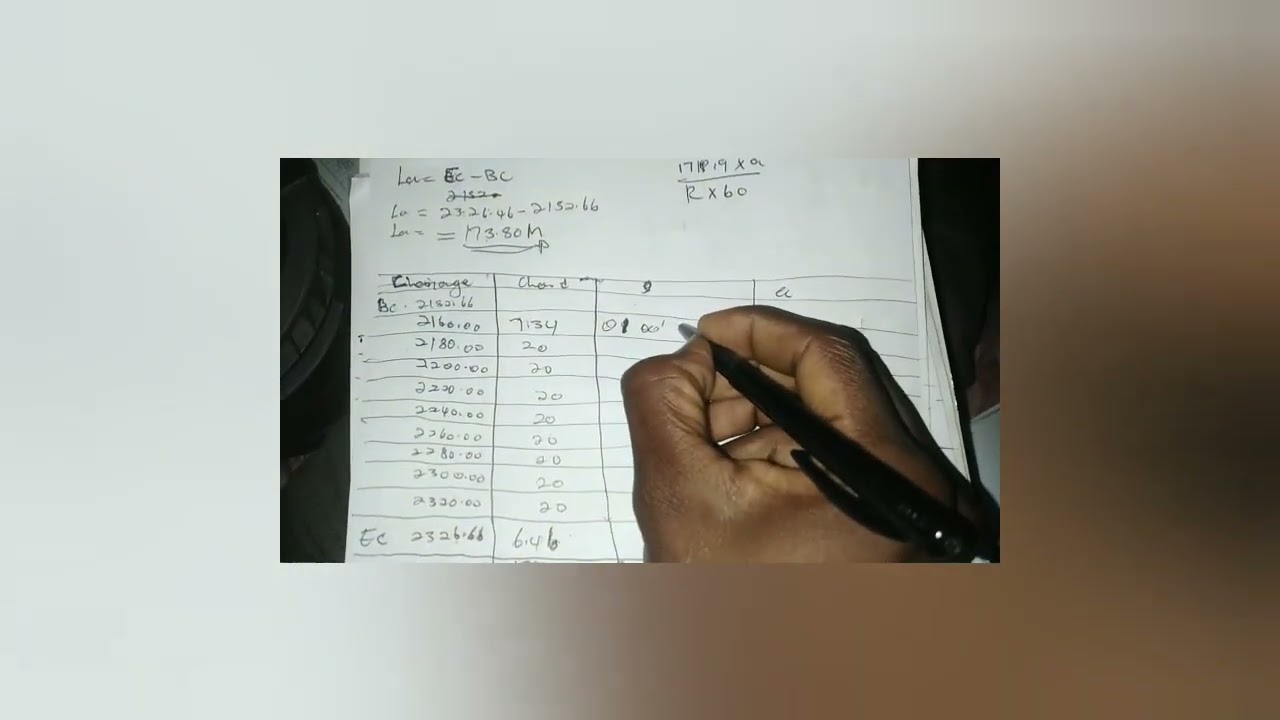 La = EC - BC
2152
La = 2326.46 - 2152.66
La = = 173.80M
1718.19 x a
R x 60
Chainage Chord θ a
BC. 2152.66
2160.00 7.34 01 00'
2180.00 20
2200.00 20
2220.00 20
2240.00 20
2260.00 20
2280.00 20
2300.00 20
2320.00 20
EC 2326.66 6.46